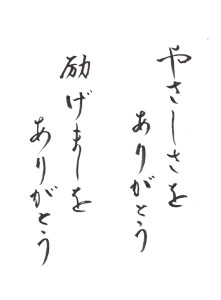 やさしさを
ありがとう
励げましを
ありがとう